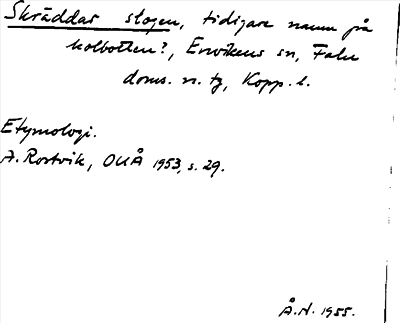 Skräddar stogen, tidigare namn på
kolbotten?, Envikens sn, Falu
doms. n. tg, Kopp. l.
Etymologi.
A. Rostvik, OUÅ 1953, s. 29.
Å.N. 1955.